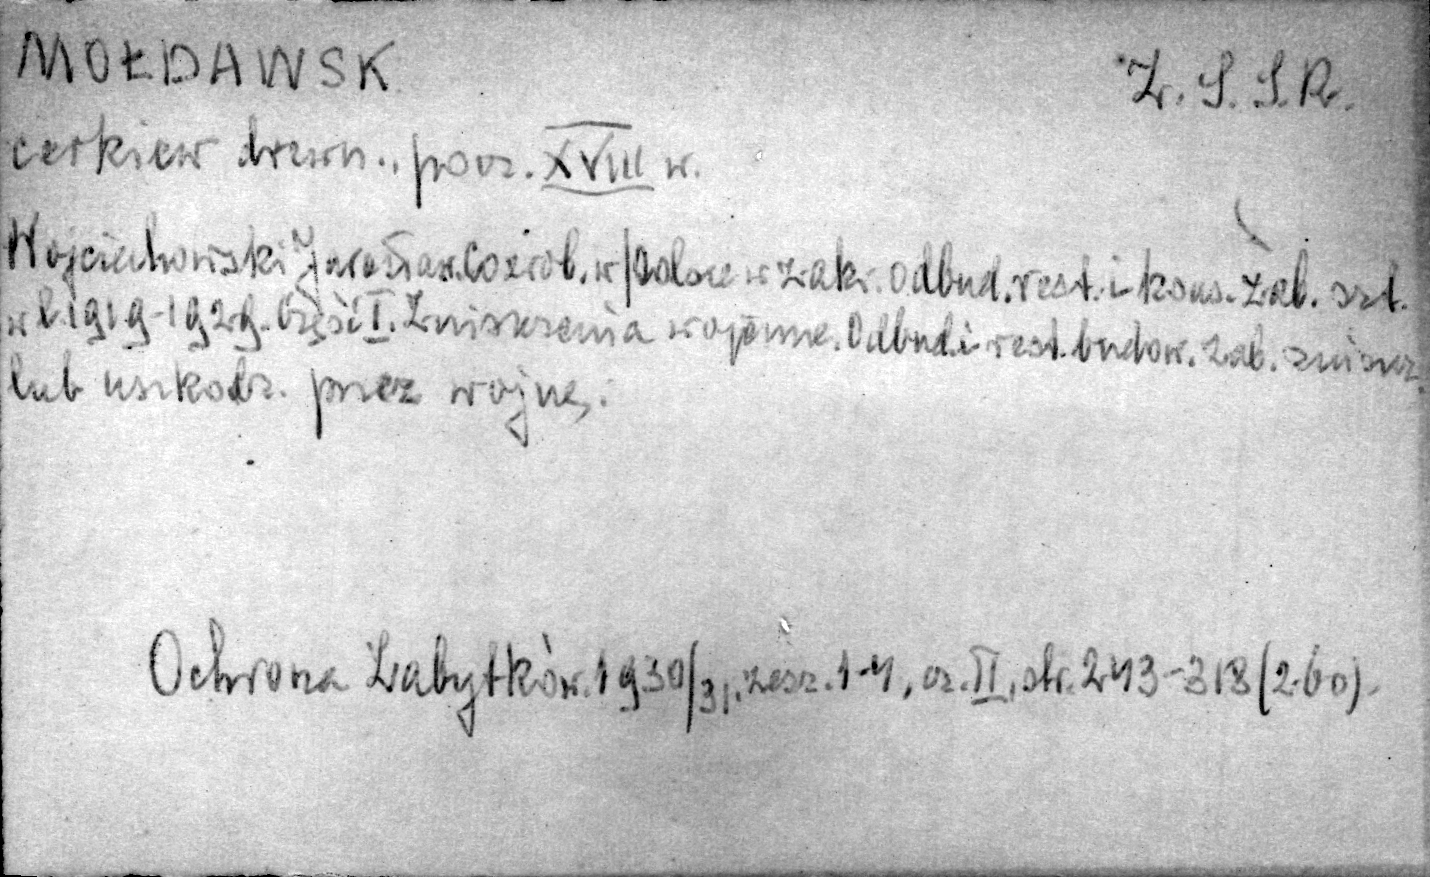 MOŁDAWSK
Z. S. S. R.
cerkiew drewn., pocz. XVIII w.
Wojciechowski Jarosław. Co zrob. w Polsce w zakr. odbud. rest. i kons. zab. szt.
w l. 1919-1929. Część II. Zniszczenia wojenne. Odbud. i rest. budow. zab. zniszcz.
lub uszkodz. przez wojnę.
Ochrona Zabytków. 1930/31, zesz. 1-4, cz. II, str. 243-318 (260).